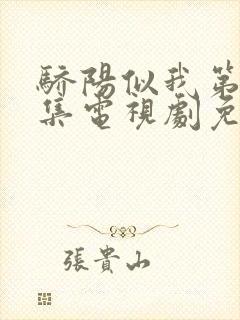 驕陽似我第
集電視劇免
張貴山